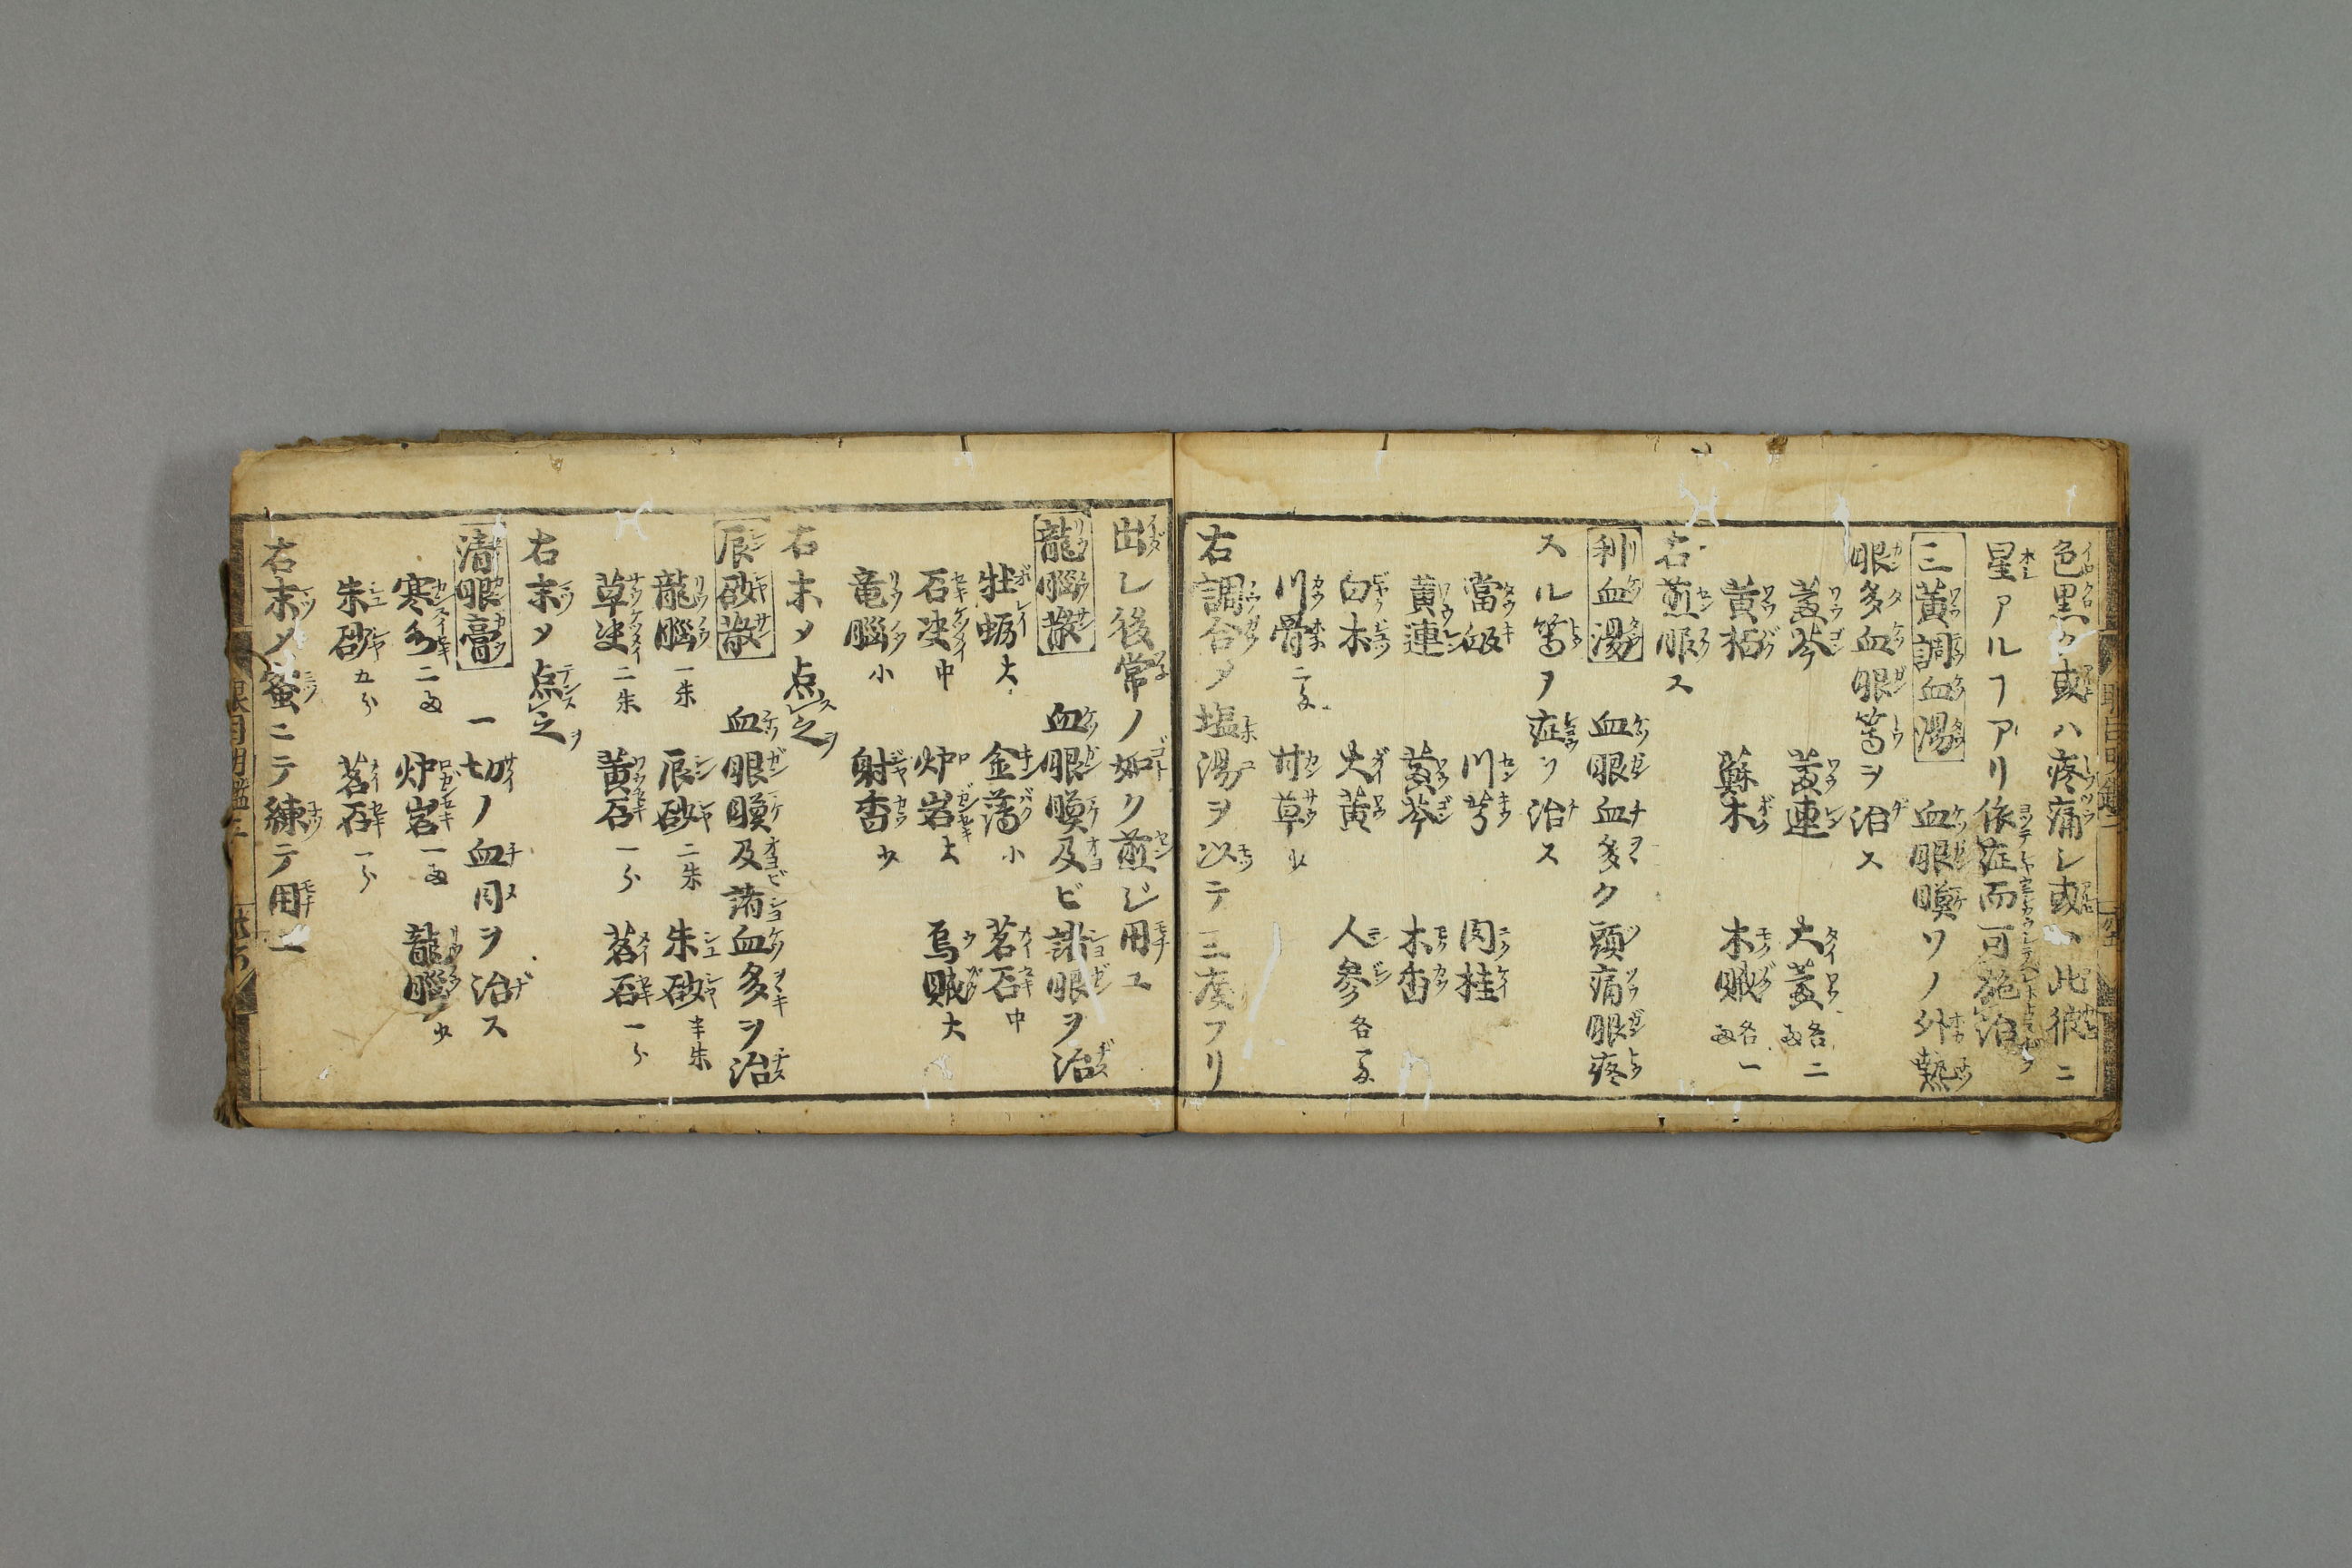 色黒ク或ハ疼痛シ或ハ此彼ニ
星アルヿアリ依症而可施治
三黄調血湯 血眼瞙ソノ外熱
眼多血眼等ヲ治ス
黄芩 黄連 大黄各二両
黄栢 蘇木 木賊各一両
右煎服ス
利血湯 血眼血多ク頭痛眼疼
スル等ノ症ヲ治ス
當皈 川芎 肉桂
黄連 黄芩 木香
白朮 大黄 人参各一匁
川骨二匁 甘草少
右調合〆塩湯ヲ以テ三度フリ
出し後常ノ如ク煎ジ用ユ
龍腦散 血眼瞙及ビ諸眼ヲ治
牡蛎大 金薄小 茗石中
石决中 炉岩大 烏賊大
竜腦小 射香少
右末〆点之
辰砂散 血眼瞙及諸血多ヲ治
龍腦一朱 辰砂二朱 朱砂半朱
草决二朱 黄石一分 茗石一分
右末〆点之
清眼膏 一切ノ血目ヲ治ス
寒水二両 炉岩一両 龍腦少
朱砂五分 茗石一分
右末〆蜜ニテ練テ用